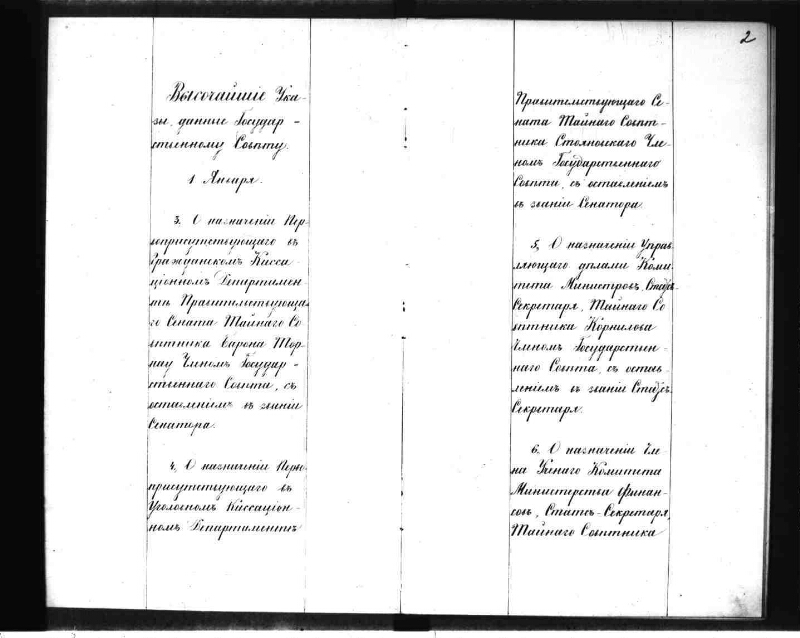 Высочайшіе Ука-
зы, данные Государ-
ственному Совѣту.
1 Января.
3. О назначеніи Пер-
воприсутствующаго въ
Гражданскомъ Касса
ціонномъ Департамен-
тѣ Правительствующа
го Сената Тайнаго Со
вѣтника Барона Тор-
нау Членомъ Государ-
ственнаго Совѣта, съ
оставленіемъ въ званіи
Сенатора.
4. О назначеніи Перво
присутствующаго въ
Уголовномъ Кассаціон-
номъ Департаментѣ
2
Правительствующаго Се-
ната Тайнаго Совѣт-
ника Стояновскаго Чле-
номъ Государственнаго
Совѣта, съ оставленіемъ
въ званіи Сенатора.
5. О назначеніи Управ
ляющаго дѣлами Коми-
тета Министровъ, Статсъ
Секретаря, Тайнаго Со
вѣтника Корнилова
Членомъ Государствен-
наго Совѣта, съ остав-
леніемъ въ званіи Статсъ
Секретаря.
6. О назначеніи Чле
на Ученаго Комитета
Министерства Финан-
совъ, Статсъ-Секретаря,
Тайнаго Совѣтника